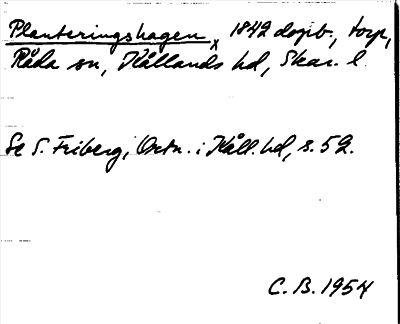 Planteringshagen x, 1842 dopb., torp,
Råda sn, Kållands hd, Skar. l.
Se S. Friberg, Ortn. i Kåll. hd, s. 52.
C. B. 1954